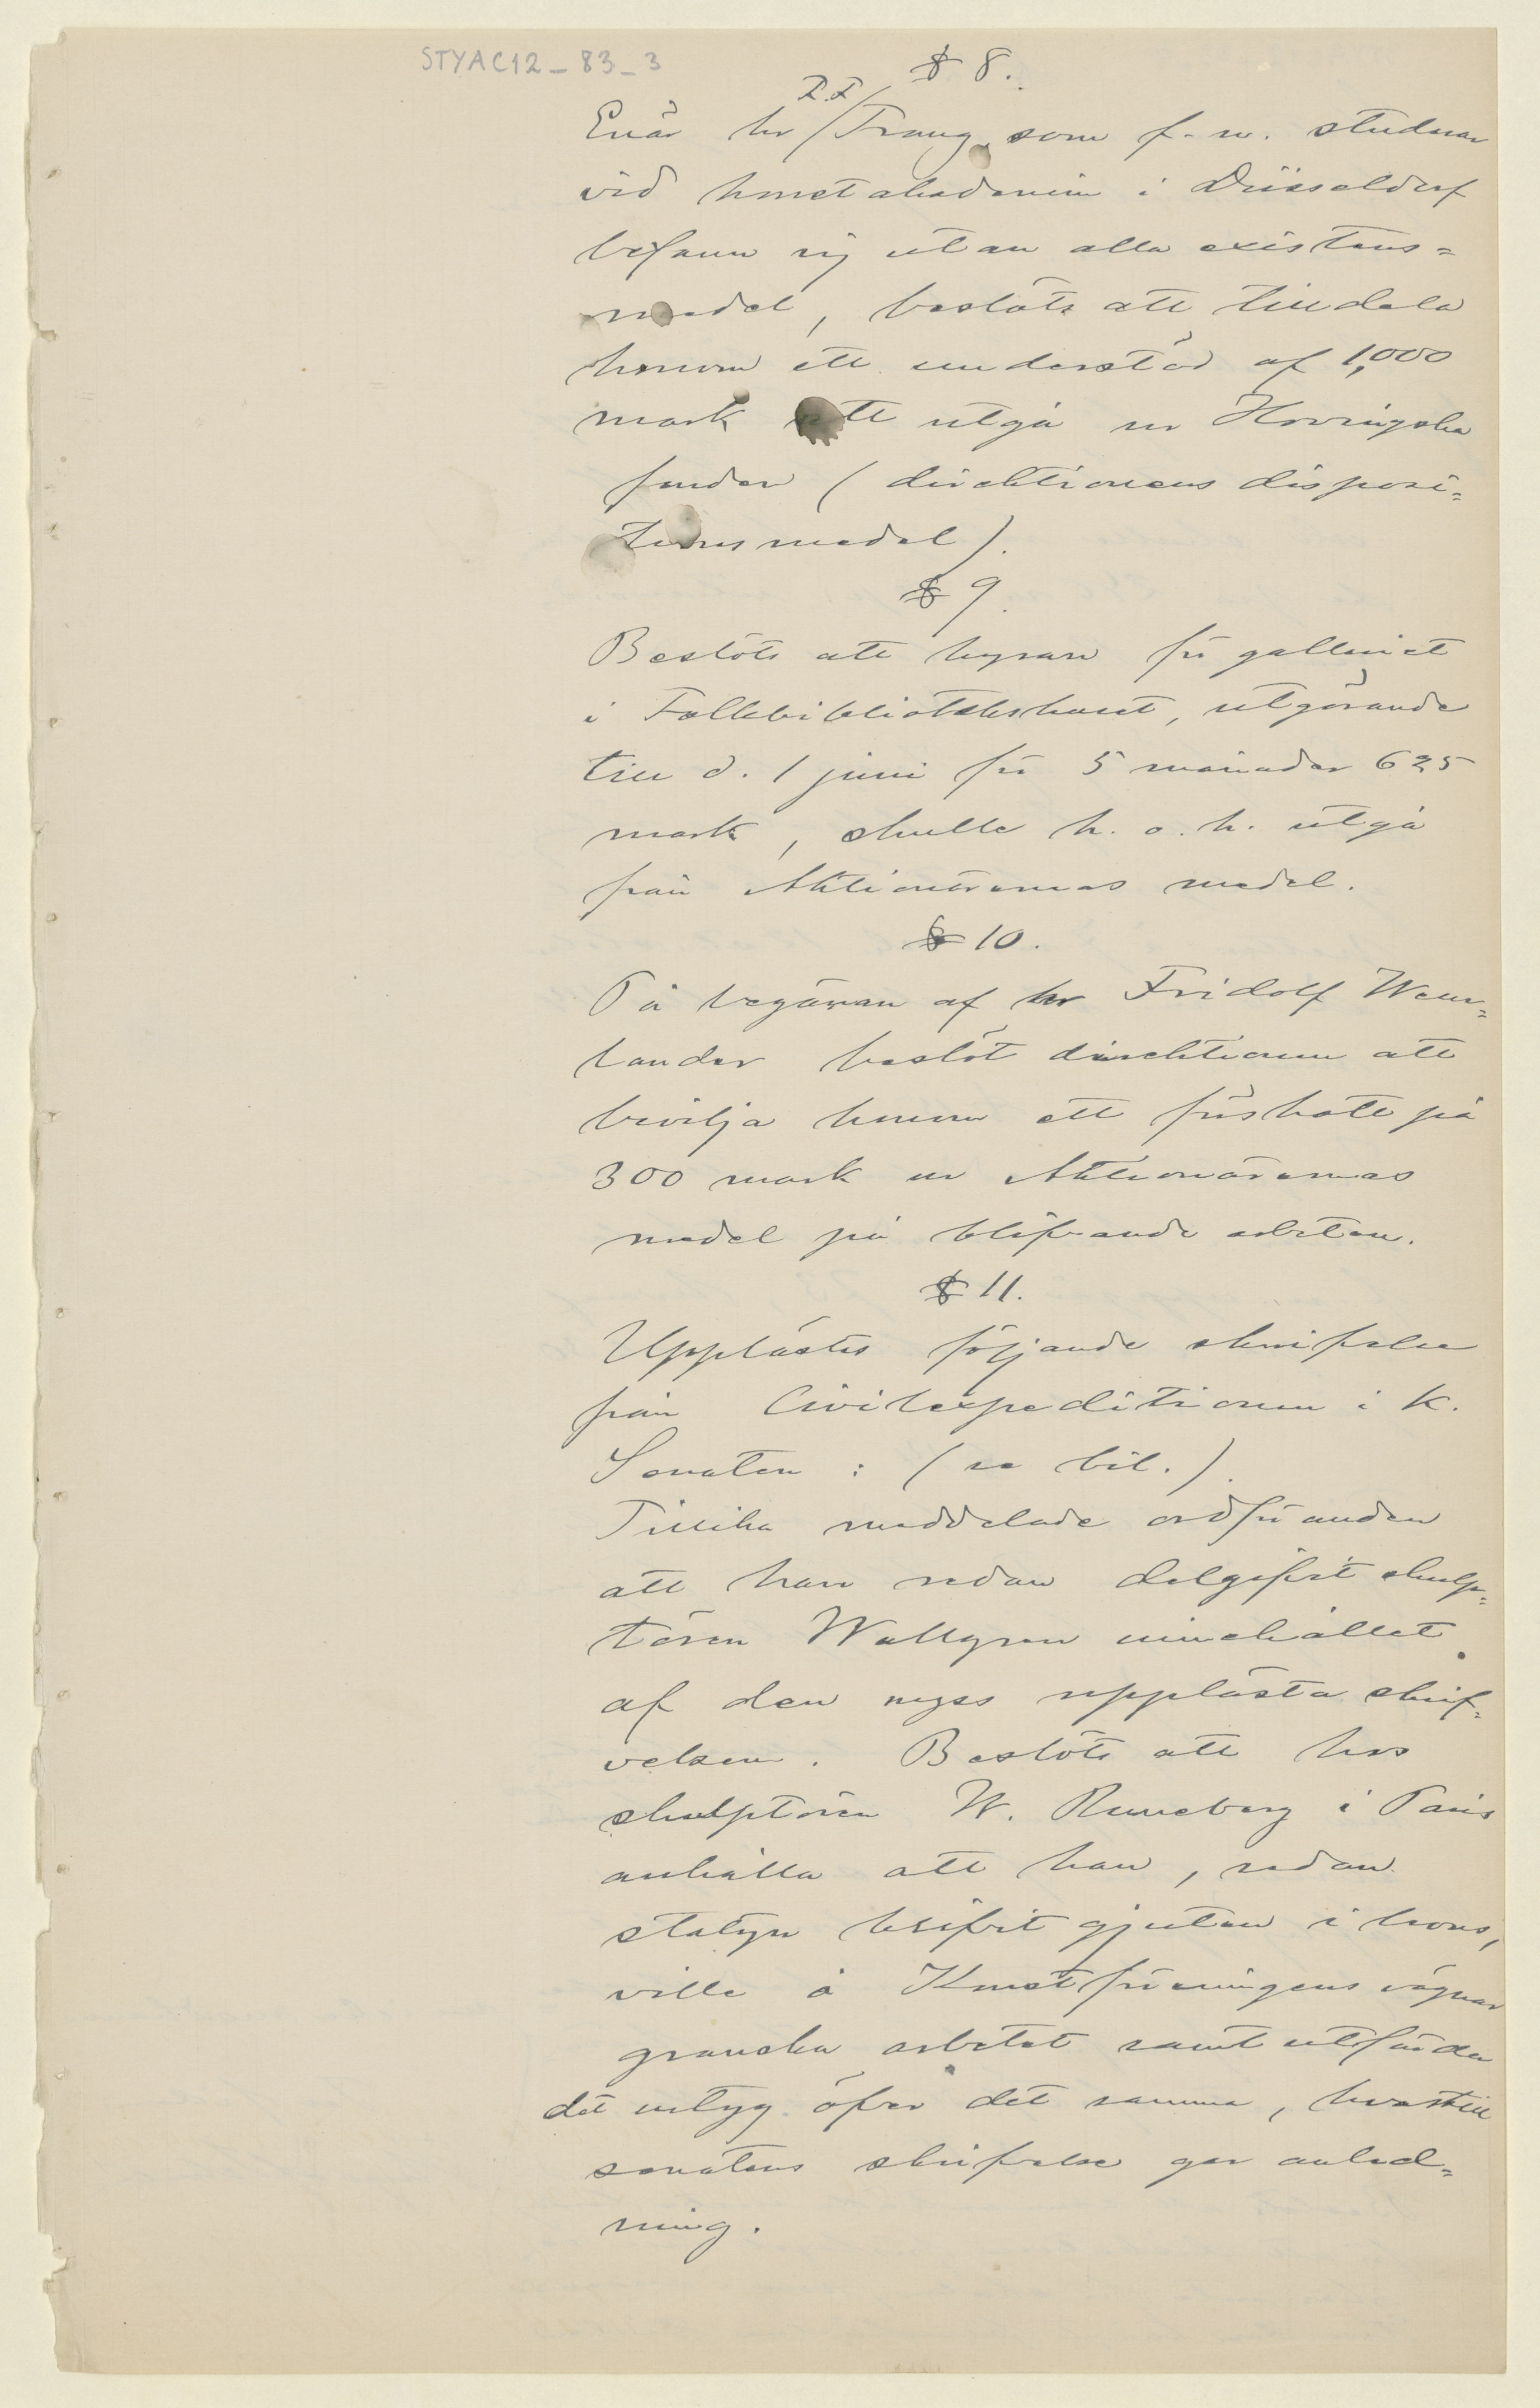 STYAC12_83_3
§ 8.
Enär hr F. F. Frang, som f. n. studerar
vid konstakademin i Düsseldorf
befann sig utan alla existens=
medel, beslöts att tilldela
honom ett understöd af 1,000
mark att utgå ur Hovingska
fonden (direktionens disposi=
tionsmedel).
§ 9.
Beslöts att hyran för galleriet
i Folkbibliotekshuset, utgörande
till d. 1 juni för 5 månader 625
mark, skulle h. o. h. utgå
från Aktionärernas medel.
§ 10.
På begäran af hr Fridolf Weur=
lander beslöt direktionen att
bevilja honom ett förskott på
300 mark ur Aktionärernas
medel på blifvande arbeten.
§ 11.
Upplästes följande skrifvelse
från Civilexpeditionen i K.
Senaten: (se bil.).
Tillika meddelade ordföranden
att han redan delgifvit skulp=
tören Wallgren innehållet
af den nyss upplästa skrif=
velsen. Beslöts att hos
skulptören W. Runeberg i Paris
anhålla att han, sedan
statyn blifvit gjuten i brons,
ville å Konstföreningens vägnar
granska arbetet samt utfärda
det intyg öfver det samma, hvartill
senatens skrifvelse ger anled=
ning.